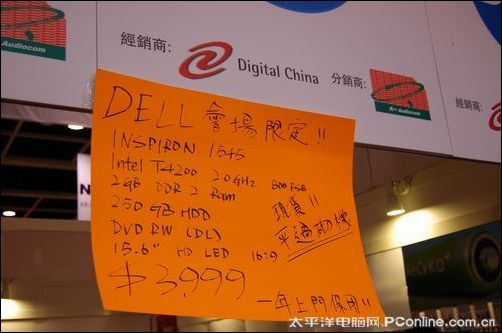 Audiocom
經銷商:
Digital China
分銷商:
Audiocom
經銷
DELL 會場限定!!
INSPIRON 1545
Intel T4200 2.0GHz 800 FSB
2GB DDR2 Ram
250GB HDD
DVD RW (DL)
15.6" HD LED 16:9
現貨!!
平過砌機
$3,999
一年上門保固!!
N
eCyko
太平洋电脑网 PConline.com.cn